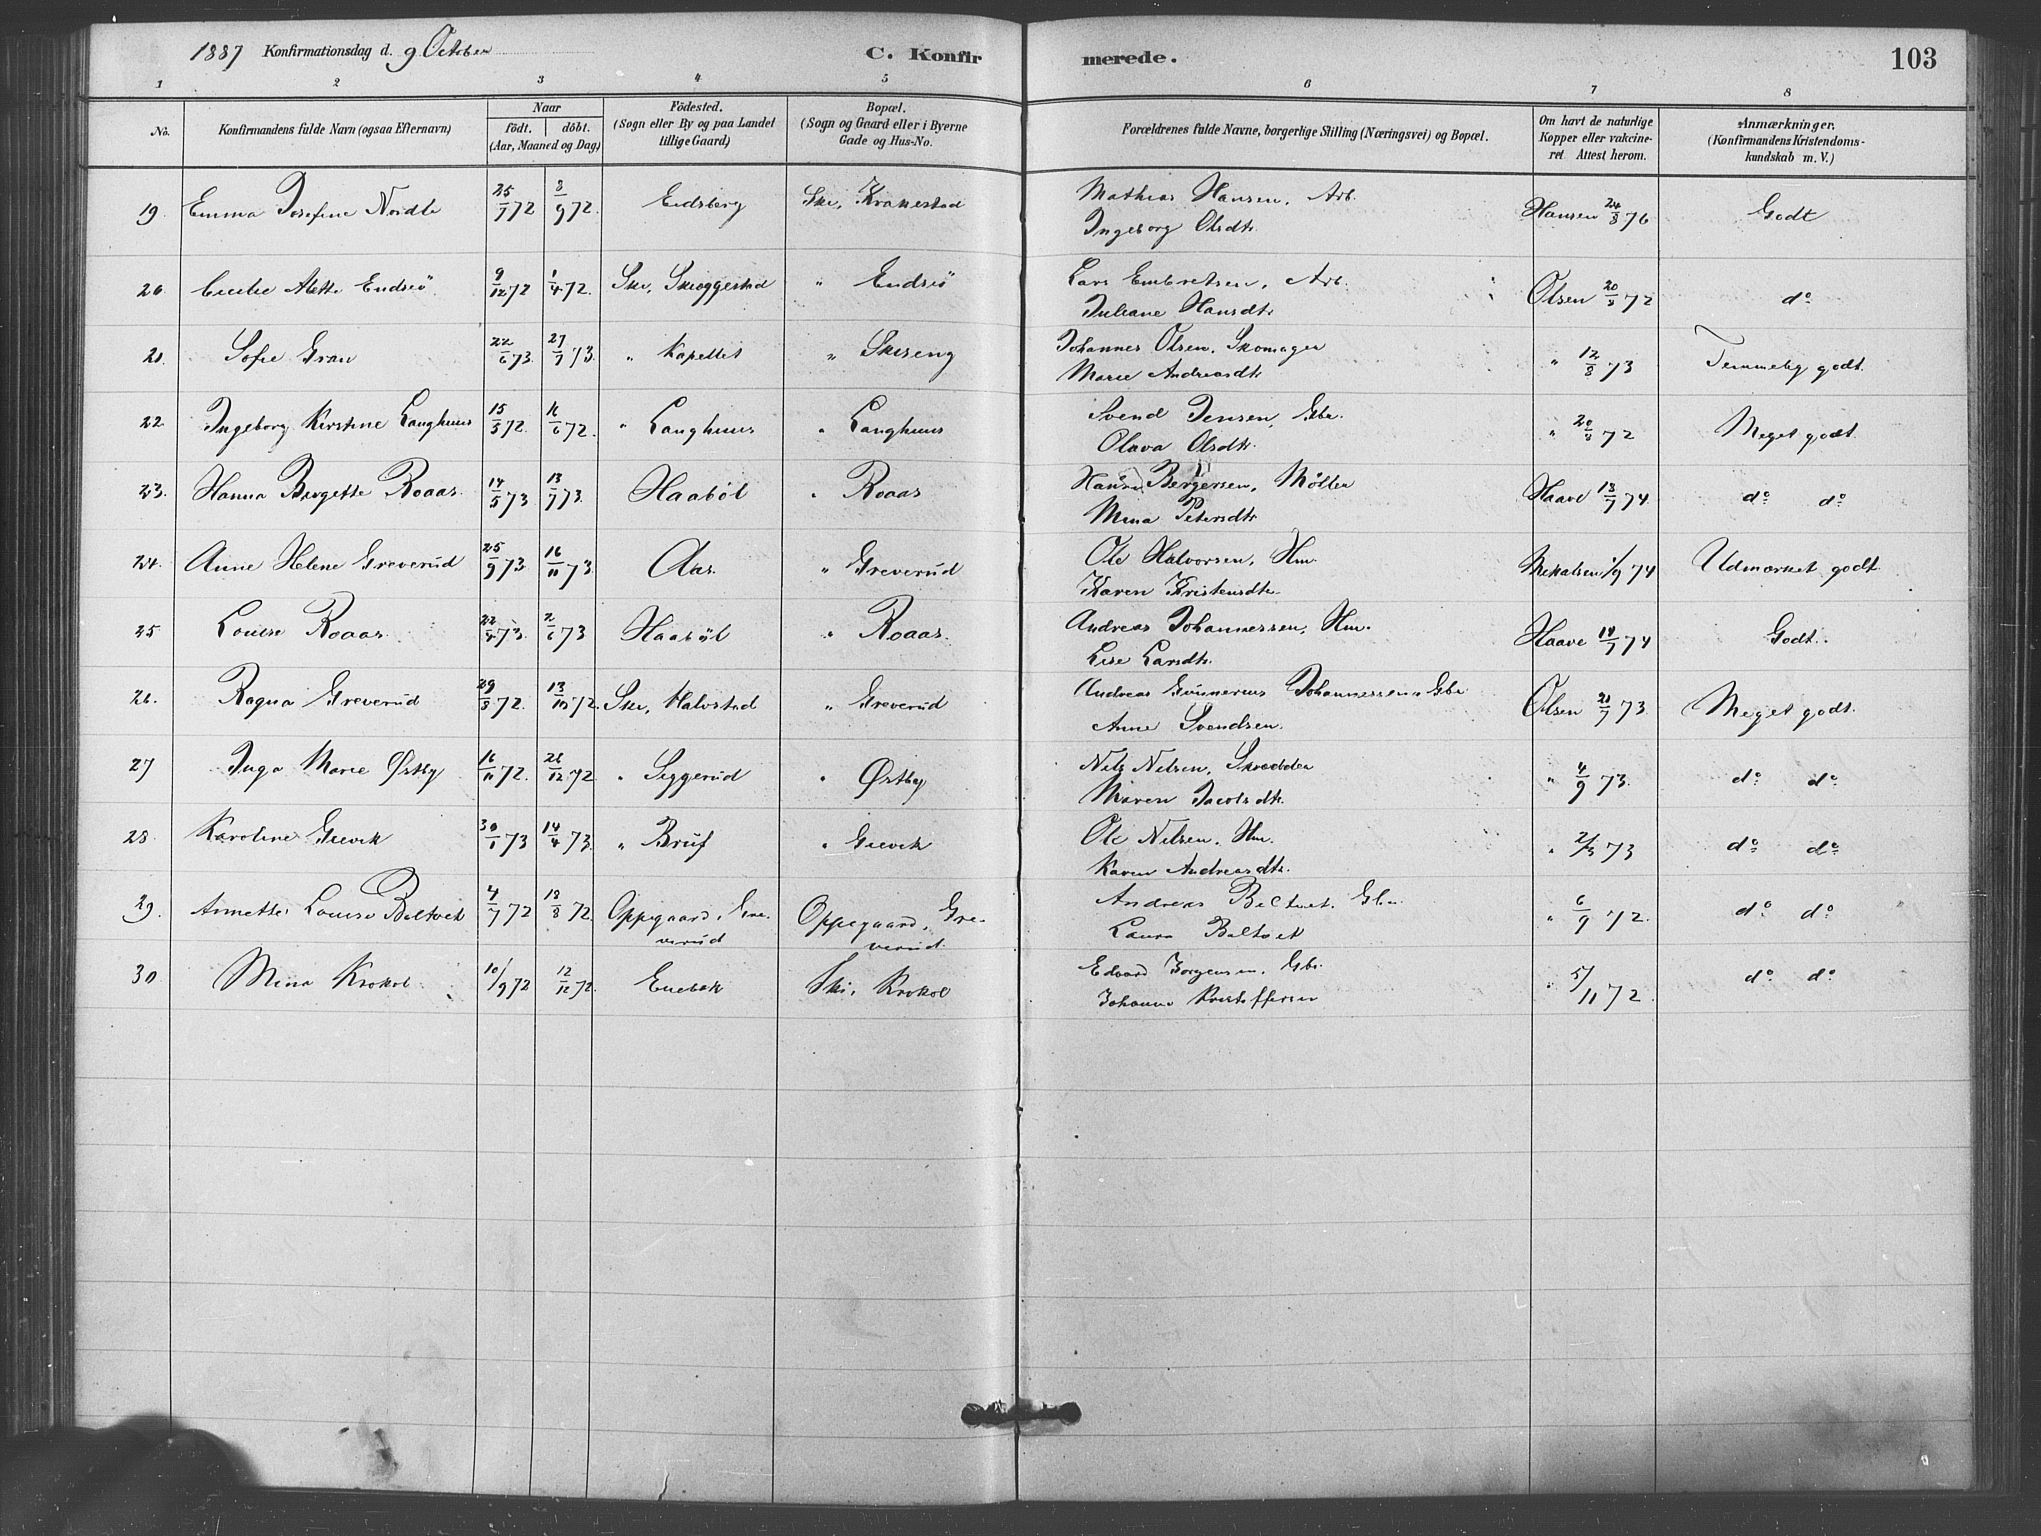 1887 Konfirmationsdag d. 9 October C. Konfirmerede. 103
1 2 3 4 5 6 7 8
No. Konfirmandens fulde Navn (ogsaa Efternavn) Naar födt. döbt. (Aar, Maaned og Dag) Födested. (Sogn eller By og paa Landet tillige Gaard) Bopæl. (Sogn og Gaard eller i Byerne Gade og Hus-No. Forældrenes fulde Navne, borgerlige Stilling (Næringsvei) og Bopæl. Om havt de naturlige Kopper eller vakcineret Attest herom. Anmærkninger. (Konfirmandens Kristendomskundskab m. V.)
19. Emma Josefine Nordli 25/7 72 8/9 72. Eidsberg Ski, Krakestad Mathias Hansen, Arb. Hansen 24/8 76 Godt
Ingeborg Olsdtr.
20. Cecilie Alette Endsjö 9/12 72 1/4 72. Ski, Skoggestad " Endsjö Lars Embretsen, Arb. Olsen 20/8 72 do
Juliane Hansdtr
21. Sofie Gran 22/6 73. 27/7 73. " Kapellet " Skiseng Johannes Olsen, Skomager " 12/8 73 Temmelig godt.
Marie Andreasdtr
22. Ingeborg Kirstine Langhuus 15/5 72. 16/6 72. " Langhuus " Langhuus Svend Jensen, Gbr. " 20/8 72 Meget godt.
Olava Olsdtr.
23. Hanna Birgette Roaas. 14/5 73 13/7 73. Haaböl " Roaas Hans Bergersen, Möller Haave 18/7 74 do do
Mina Petersdtr
24. Anne Helene Greverud 25/9 73 16/11 73. Aas. " Greverud Ole Halvorsen, Hm. Mikalsen 1/9 74 Udmærket godt
Karen Kristensdtr.
25 Louise Roaas. 22/4 73. 2/6 73 Haaböl " Roaas. Andreas Johannessen, Hm. Haave 18/7 74 Godt.
Lise Larsdtr.
26. Ragna Greverud 29/8 72. 13/10 72. Ski, Halvstad " Greverud Andreas Gunnerius Johannessen Gbr Olsen 21/7 73. Meget godt.
Anne Svendsen.
27 Inga Marie Østby 16/11 72. 26/12 72 " Siggerud " Østby Nils Nilsen, Skrædder " 4/9 73. do do
Maren Jacobsdtr.
28. Karoline Gjevik 30/1 73 14/4 73. " Bruf " Gjevik Ole Nilsen, Hm. " 2/3 73 do do
Karen Andreasdtr.
29. Annette Louise Boltvet 4/7 72 18/8 72. Oppegaard, Gre- Oppegaard, Gre- Andreas Boltvet, Gbr. " 6/9 72. do do
verud verud. Laura Boltvet
30 Mina Krokol 10/9 72 12/12 72. Enebak Ski, Krokol Edvard Jorgensen, Gbr. " 5/11 72. do do
Johanne Kristoffersen